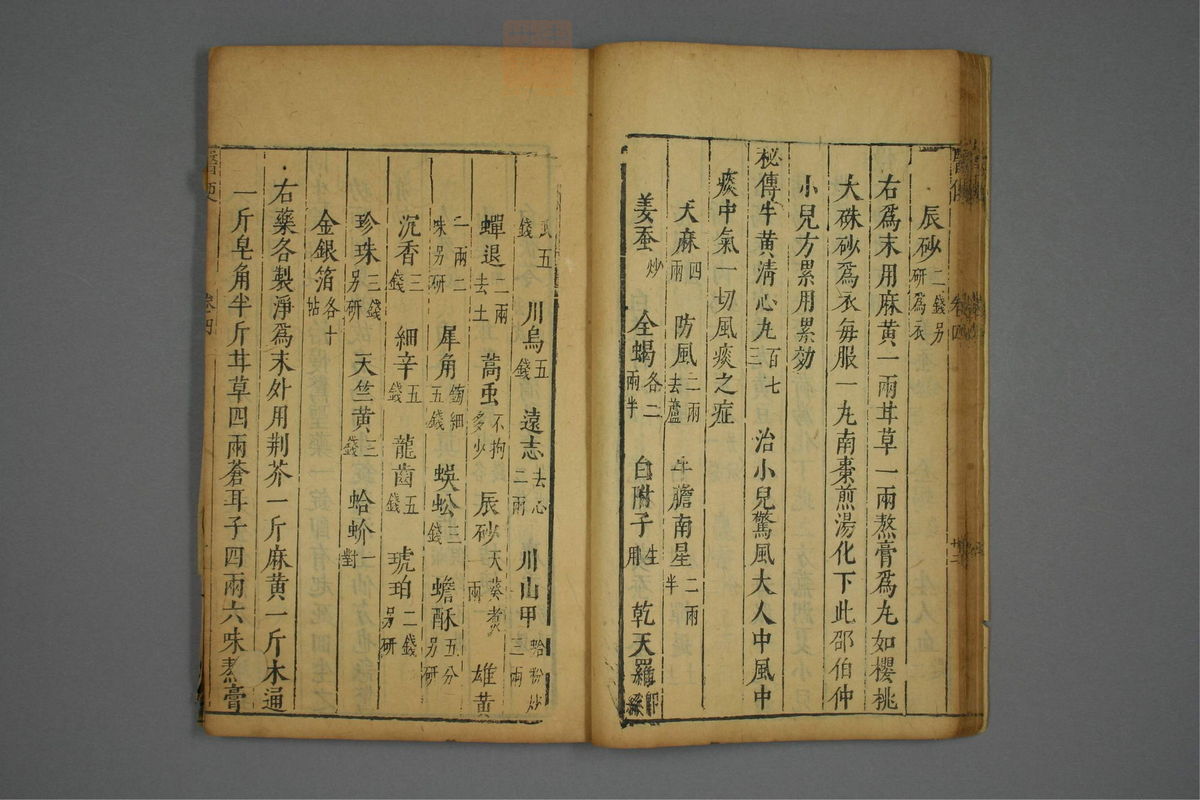 辰砂二錢另研爲衣
右爲末用麻黃一兩甘草一兩熬膏爲丸如櫻桃
大硃砂爲衣每服一丸南棗煎湯化下此邵伯仲
小兒方累用累効
秘傳牛黃淸心丸百七三 治小兒驚風大人中風中
痰中氣一切風痰之症
天麻四兩 防風二兩去蘆 牛膽南星二兩半
姜蚕炒 全蝎各二兩半 白附子生用 乾天羅卽絲
五錢 川烏五錢 遠志去心二兩 川山甲蛤粉炒三兩
蟬退二兩去土 蒿虫不拘多少 辰砂天葵煑一兩 雄黃
一兩二味另研 犀角鎊細五錢 蜈蚣三錢 蟾酥五分另研
沉香三錢 細辛五錢 龍齒五錢 琥珀二錢另研
珍珠三錢另研 天竺黃三錢 蛤蚧一對
金銀箔各十帖
右藥各製淨爲末外用荆芥一斤麻黃一斤木通
一斤皂角半斤甘草四兩蒼耳子四兩六味熬膏
卷四